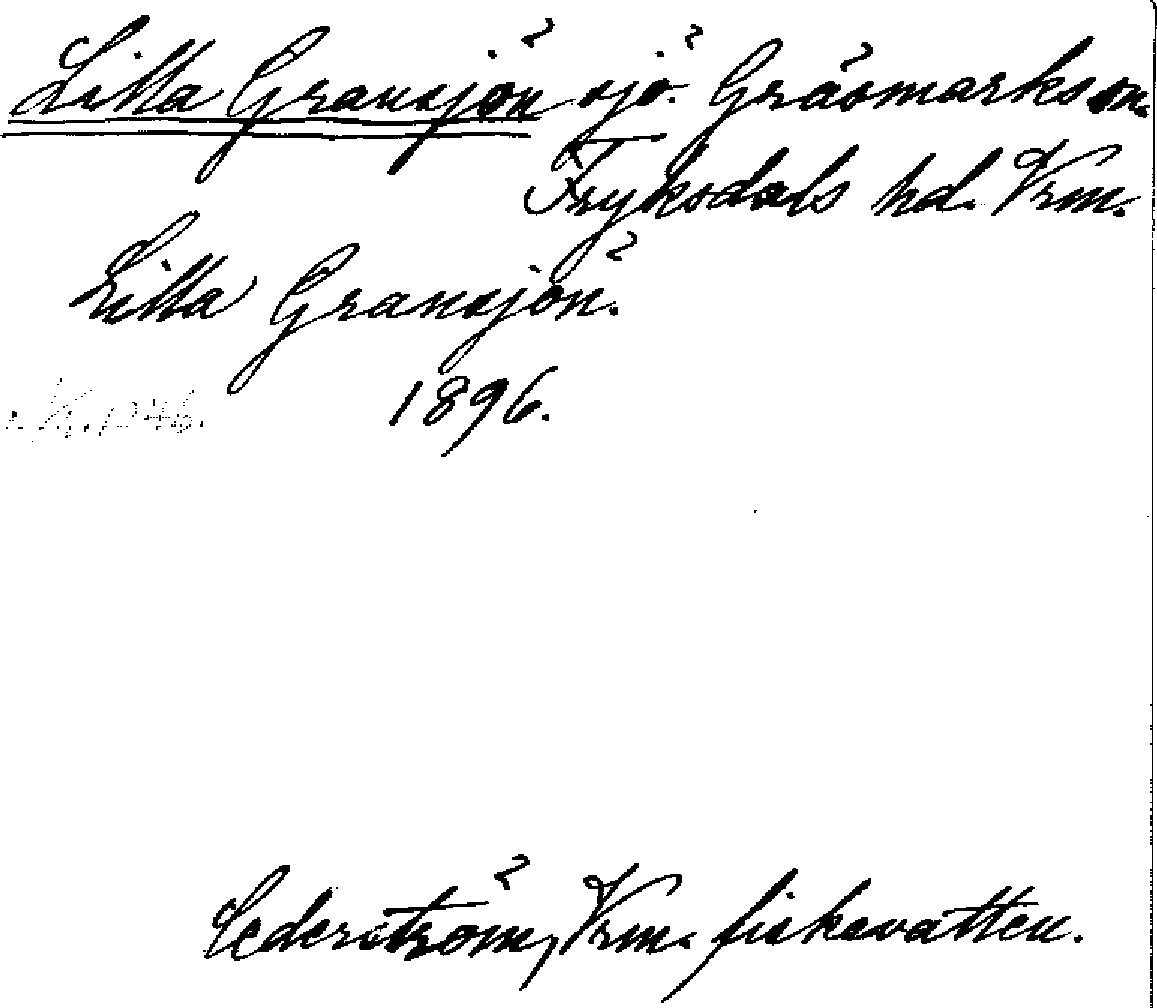 Lilla Gransjön sjö. Gräsmarks sn.
Fryksdals hd. Vrm.
Lilla Gransjön.
1896.
Cederström, Vrm. fiskevatten.